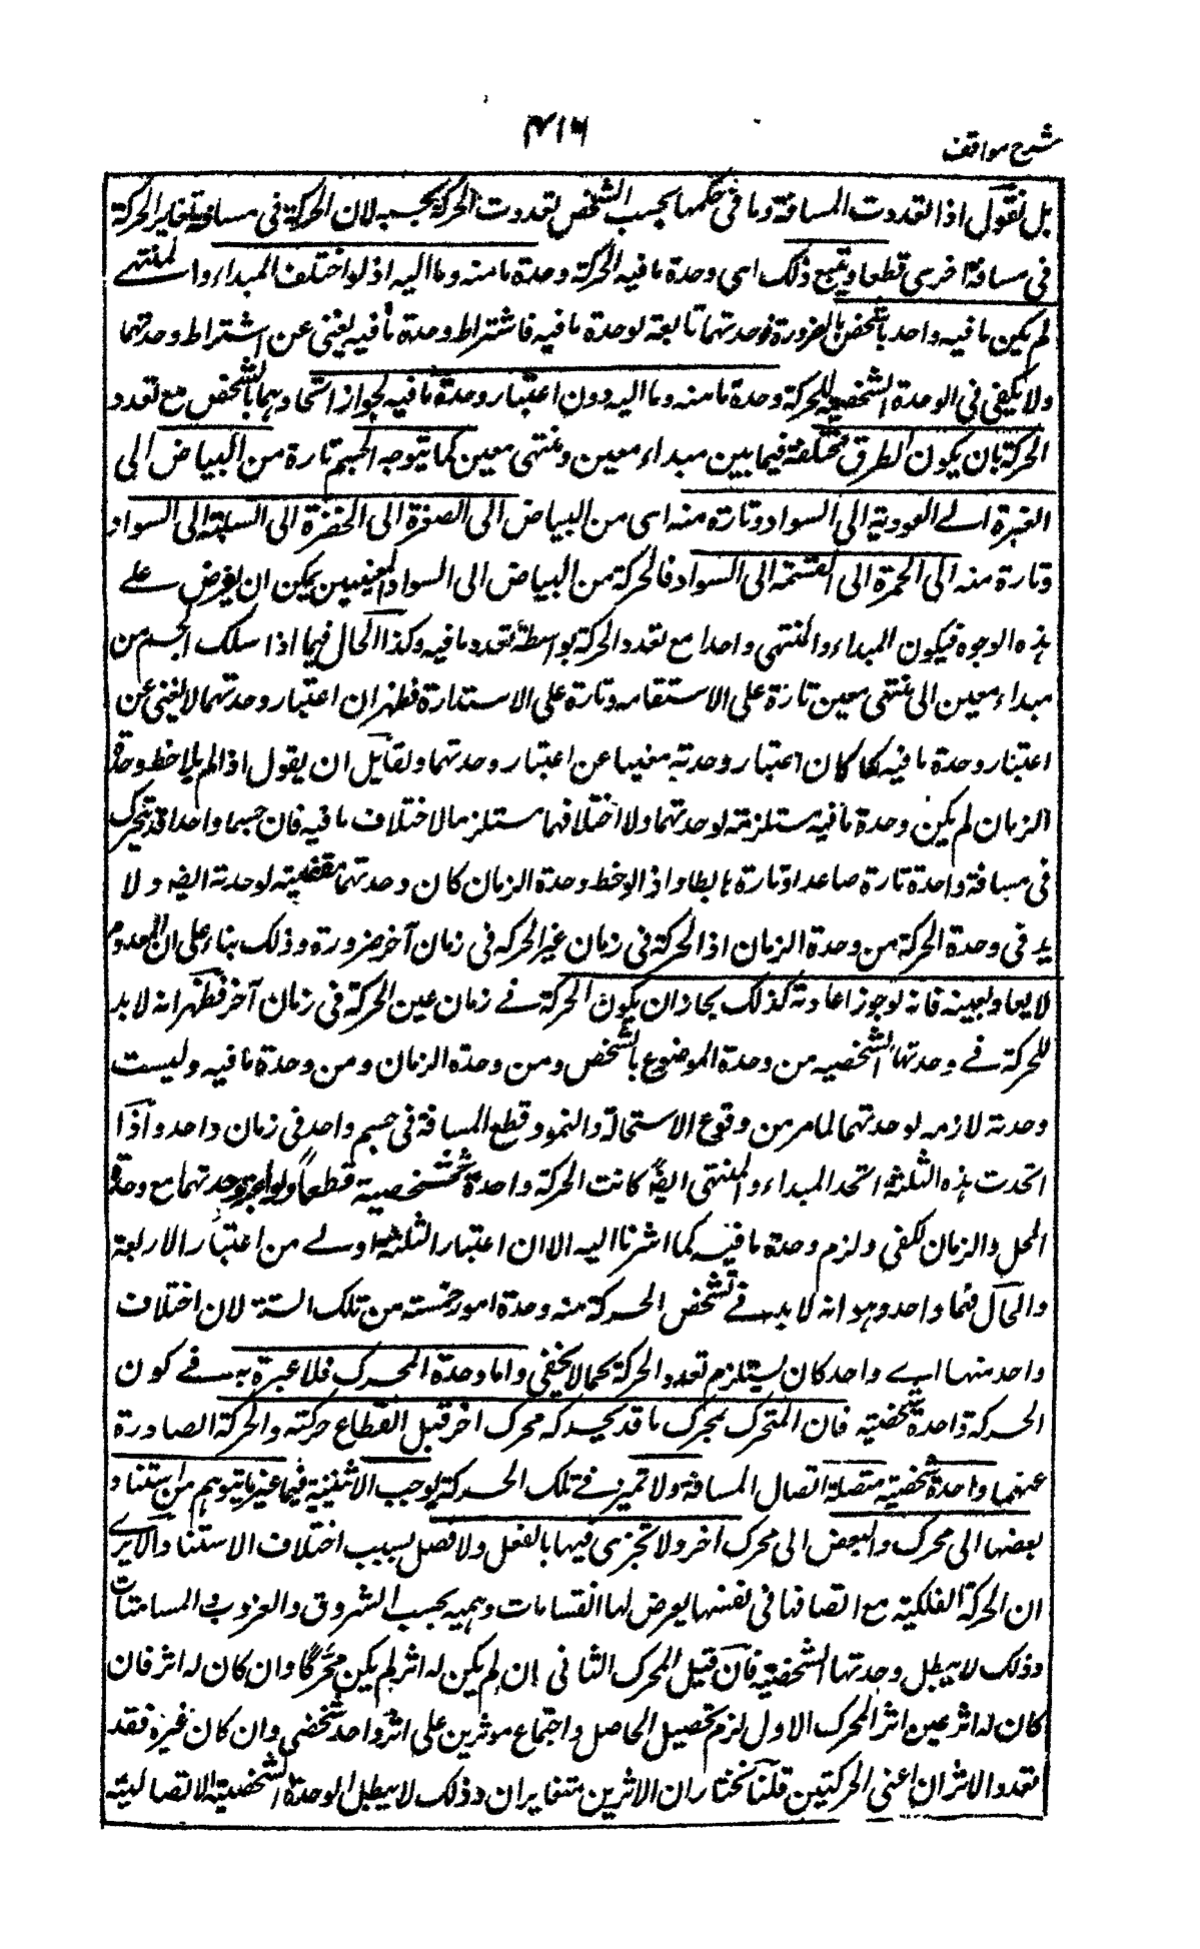 ۴۱۶
شرح مواقف
بل نقول اذا تعددت المسافة وما فى حكمها بحسب الشخص تعددت الحركة بحسبه لان الحركة فى مسافة تغاير الحركة
فى مسافة اخرى قطعا ويتبع ذلك اى وحدة ما فيه الحركة وحدة ما منه وما اليه اذ لو اختلف المبداء والمنتهے
لم يكن ما فيه واحد بالشخص بالضرورة فوحدتهما تابعة لوحدة ما فيه فاشتراط وحدة ما فيه يغنى عن اشتراط وحدتهما
ولا يكفى فى الوحدة الشخصية للحركة وحدة ما منه وما اليه دون اعتبار وحدة ما فيه لجواز اتحادهما بالشخص مع تعدد
الحركة بان يكون الطرق مختلفة فيما بين مبداء معين ومنتهى معين كما يتوجه الجسم تارة من البياض الى
الغبرة الے العودية الى السواد وتارة منه اى من البياض الى الصفرة الى الخضرة الى النيلية الى السواد
وتارة منه الى الحمرة الى القتمة الى السواد فالحركة من البياض الى السواد المعينين يمكن ان يفرض علے
هذه الوجوه فيكون المبداء والمنتهى واحدا مع تعدد الحركة بواسطة تعدد ما فيه وكذا الحال فيما اذا سلك الجسم من
مبداء معين الى منتهى معين تارة على الاستقامه وتارة على الاستدارة فظهر ان اعتبار وحدتهما لا يغنى عن
اعتبار وحدة ما فيه كما كان اعتبار وحدته مغنيا عن اعتبار وحدتهما ولقائل ان يقول اذا لم يلاحظ وحدة
الزمان لم يكن وحدة ما فيه مستلزمة لوحدتهما ولا اختلافهما مستلزما لاختلاف ما فيه فان جسما واحدا قد يتحرك
فى مسافة واحدة تارة صاعدا وتارة هابطا واذا لوحظ وحدة الزمان كان وحدتهما مقتضية لوحدته ايضا ولا
بد فى وحدة الحركة من وحدة الزمان اذ الحركة فى زمان غير الحركه فى زمان آخر ضرورة وذلك بناء على ان المعدوم
لا يعاد بعينه فانه لو جوز اعادته كذلك بجاز ان يكون الحركة فے زمان عين الحركة فى زمان آخر فظهر انه لا بد
للحركة فے وحدتها الشخصيه من وحدة الموضوع بالشخص ومن وحدة الزمان ومن وحدة ما فيه وليست
وحدته لازمه لوحدتهما لما مر من وقوع الاستحالة والنمو وقطع المسافة فى جسم واحد فى زمان واحد واذا
اتحدت هذه الثلثة اتحد المبداء والمنتهى ايضا كانت الحركة واحدة شخصية قطعا ولو اعتبر وحدتهما مع وحدة
المحل والزمان لكفى ولزم وحدة ما فيه كما اشرنا اليه الا ان اعتبار الثلثة اولے من اعتبار الاربعة
والحال فيهما واحد وهو انه لا بد فے تشخص الحركة منه وحدة امور خمسة من تلك الستة لان اختلاف
واحد منها اے واحد كان يستلزم تعدد الحركة كما لا يخفى واما وحدة المحرك فلا عبرة به فے كون
الحركة واحدة شخصية فان المتحرك بمحرك ما قد يحركه محرك اخر قبل انقطاع حركته والحركة الصادرة
عنهما واحدة شخصية متصلة اتصال المسافة ولا تميز فے تلك الحركة يوجب الاثنينية فيها غير ما يتوهم من استناد
بعضها الى محرك والبعض الى محرك اخر ولا تجزى فيها بالفعل ولا فصل بسبب اختلاف الاستناد الا يرے
ان الحركة الفلكية مع اتصافها فى نفسها يعرض لها انقسامات وهمية بحسب الشروق والغروب والمسامتات
وذلك لا يبطل وحدتها الشخصية فان قيل المحرك الثانى ان لم يكن له اثر لم يكن محركا وان كان له اثر فان
كان له اثر عين اثر المحرك الاول لزم تحصيل الحاصل واجتماع موثرين على اثر واحد شخصى وان كان غيره فقد
تعدد الاثران اعنى الحركتين قلنا نختار ان الاثرين متغايران وذلك لا يبطل الوحدة الشخصية الاتصالية